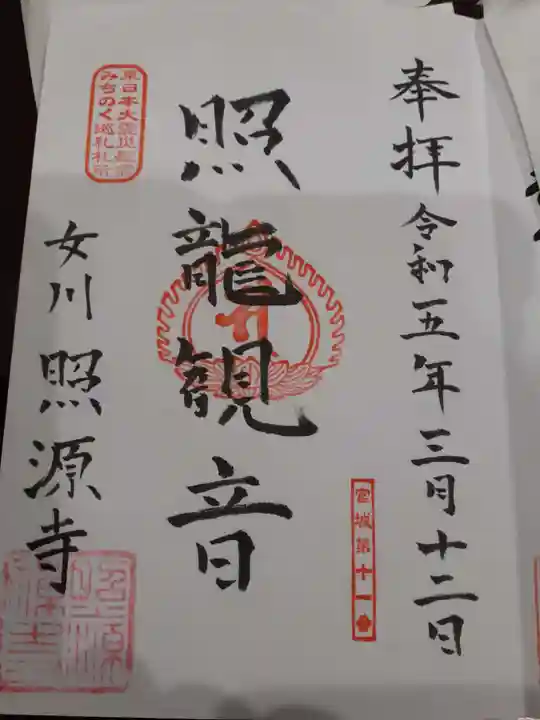 奉拝 令和五年三月十二日
宮城第十一番
照龍観音
東日本大震災慰霊
みちのく巡礼札所
女川 照源寺